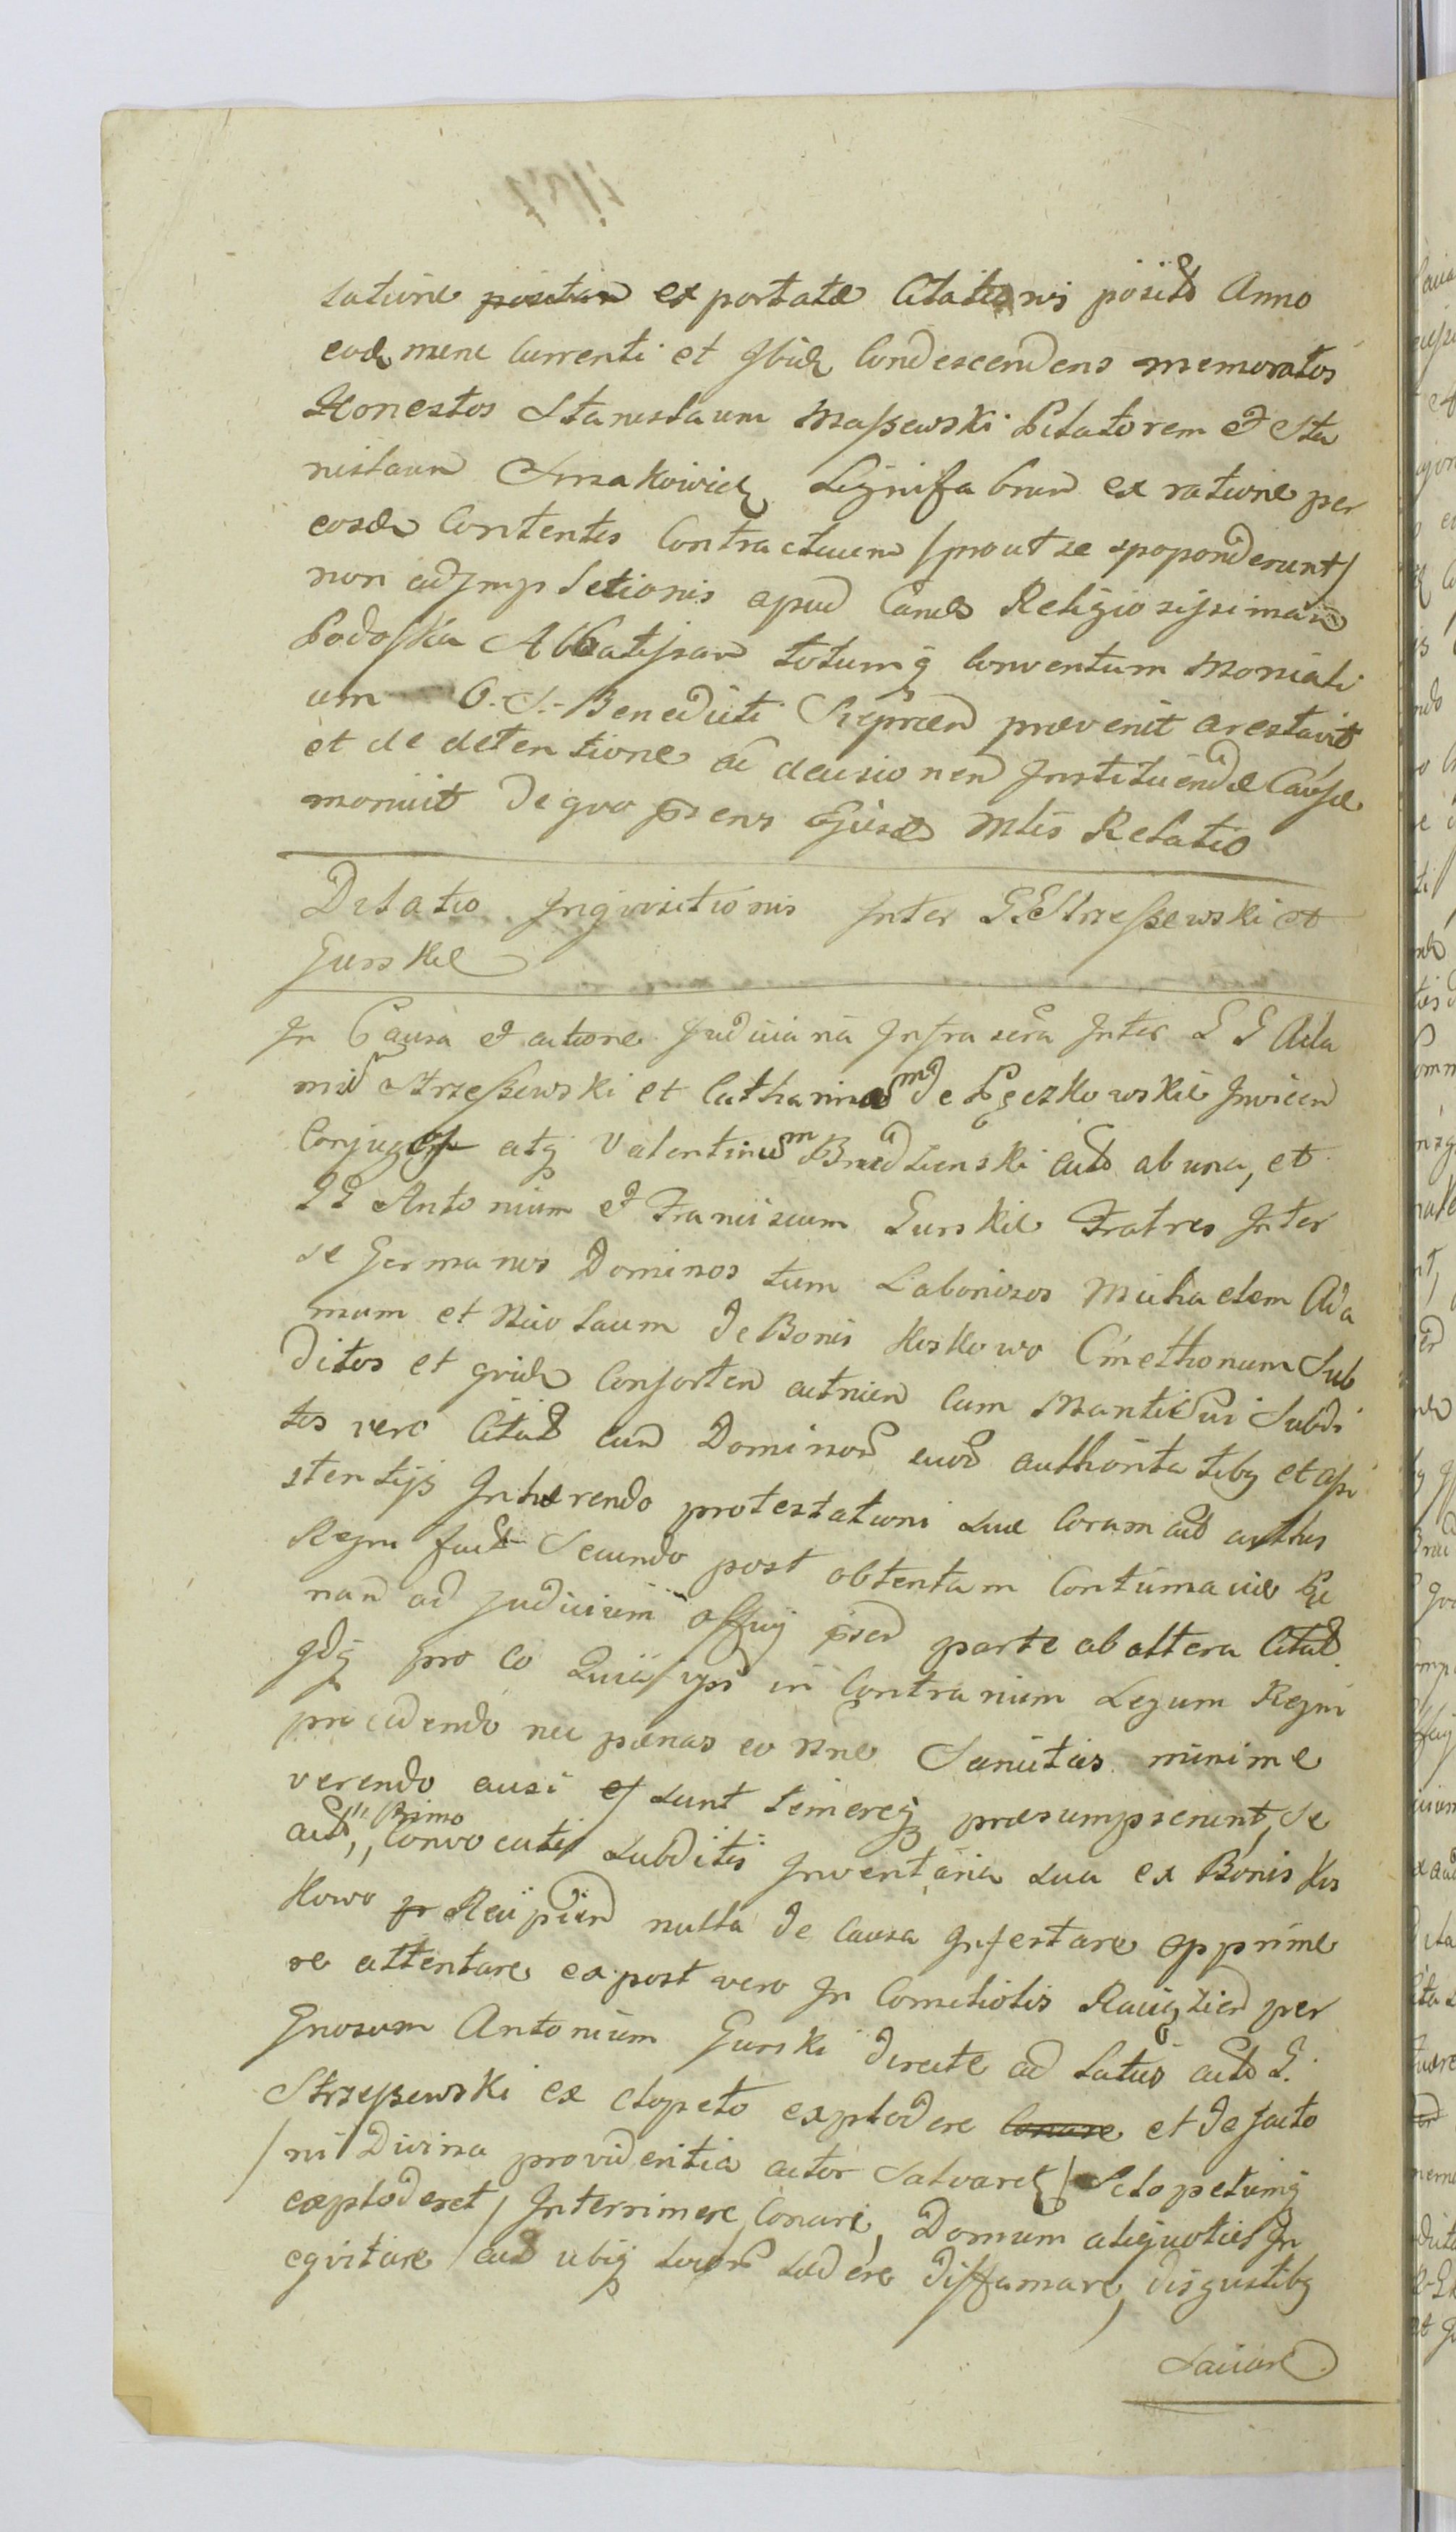 latione positam exportatæ Citationis posit Anno
eod mene Currenti et Ibid Condescendens memoratos
Honestos Stanislaum Maszewski Pilatorem et Sta
nislaum Signifabrum ex ratione per
eosd Contentis Contractuum /prout se spoponderunt/
non adimpletionis apud eand Religiosissimam
Podoska Abbatissam totumq Conventum Moniali
um O. S. Benedicti Sierpcen prævenit arestavit
et de detentione ac decisionem Instituendæ Causæ
monuit De quo præsens Ejusd Mtlis Relatio
Dilatio Inqvisitionis Inter G. G. Strzeszewski et
Gurskie
In Causa et actione Judiciaria Infra scra Inter G G Ada
mum Strzeszewski et Catharinam de Pęczkowskie Invicem
Conjuges atq Valentinum act ab una, et
GG Antonium et Franciscum Gurskie Fratres Inter
se Germanos Dominos tum Laboriosos Michaelem Ada
mum et Nicolaum de Bonis Koskowo Cmethonum Sub
ditos et qvid Consortem actricem Cum Mariti Sui Subdi
tos vero Citat cum Dominor suor authoritatibq et assi
stentijs Inhærendo protestationi suæ Coram act
Regni fact Secundo post obtentam Contumaciæ
nam ad Judicium Offij præsen parte ab altera Citat
qdq pro eo Quia ipsi in Contrarium Legum Regni
procedendo nec pænas eo Nne Sancitas minime
verendo ausi sunt temereq præsumpserunt, se
act, Primo Convocatis Subditis Inventaria sua ex Bonis Kos
kowo Recipien nulla de Causa Infestare opprime
re attentare ex post vero In Comitiolis Raciązien per
Gnosum Antonium Gurski directe ad Latus act G.
Strzeszewski ex clopeto explodere Conare et de facto
/ni Divina providentia actor Salvaret/ Sclopetumq
exploderet/ Interimere Conari, Domum aliquoties In
eqvitare act ubiq Locor Lædere diffamare, disgustibq